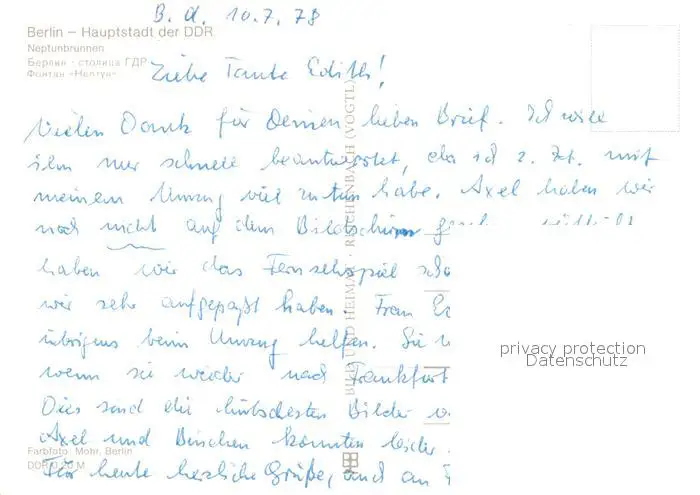 B. d. 10.7.78
Berlin – Hauptstadt der DDR
Neptunbrunnen
Берлин · столица ГДР
Фонтан «Нептун»
Liebe Tante Edith!
Vielen Dank für Deinen lieben Brief. Ich will
ihn nur schnell beantwortet, da ich z. Zt. mit
meinem Umzug viel zu tun habe. Axel haben wir
noch nicht auf dem Bildschirm
haben wir das Fernsehspiel
wir sehr aufgepaßt haben. Frau
übrigens beim Umzug helfen. Sie
wenn sie wieder nach Frankfurt
Dies sind die hübschesten Bilder
Axel und Binchen konnten leider
Für heute herzliche Grüße, auch an
BILD UND HEIMAT · REICHENBACH (VOGTL)
Farbfoto: Mohr, Berlin
DDR 0,20 M
privacy protection
Datenschutz